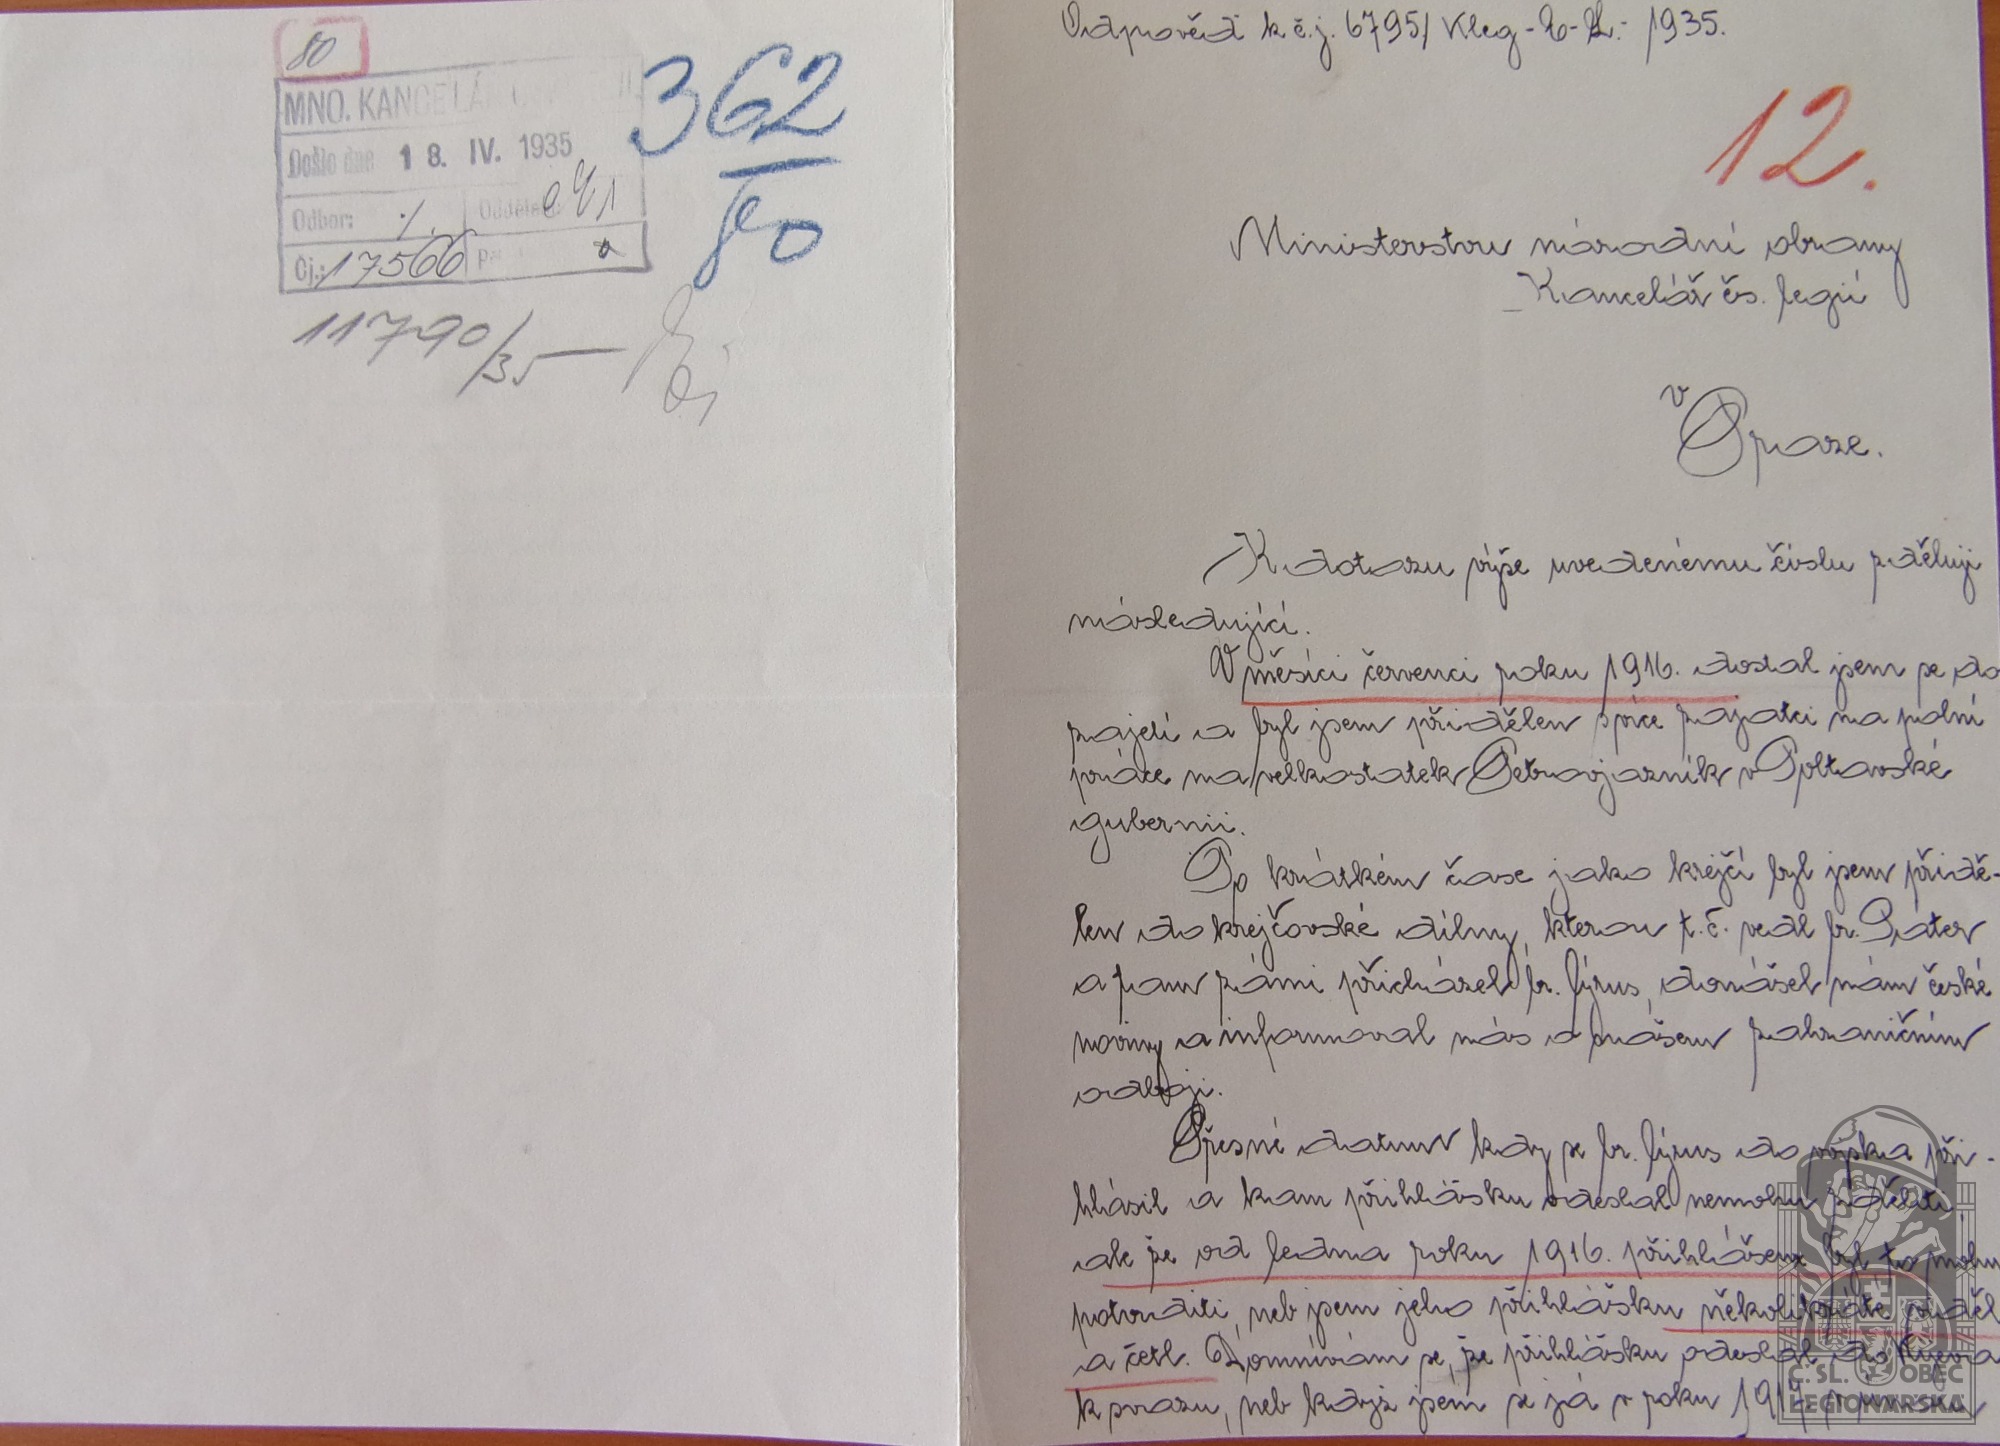 80
MNO. KANCELÁ
Došlo dne 18. IV. 1935
Odbor: 1. Oddělení
Čj.: 17566
362
80
11790/35
Odpověď k č.j. 6795/ Kleg - 1935.
12.
Ministerstvu národní obrany
Kancelář čs. legií
v
Praze.
K dotazu výše uvedenému číslu sděluji
následující.
V měsíci červenci roku 1916. dostal jsem se do
zajetí a byl jsem přidělen více zajatci na polní
práce na velkostatek v Poltavské
gubernii.
Po krátkém čase jako krejčí byl jsem přidě-
len do krejčovské dílny, kterou t.č. vedl br. Páter
a tam s námi přicházel br. Týrus, donášel nám české
noviny a informoval nás o našem zahraničním
odboji.
Přesné datum kdy se br. Týrus do vojska při-
hlásil a kam přihlášku odeslal nemohu sděliti,
ale že od ledna roku 1916. přihlášen byl to mohu
potvrditi, neb jsem jeho přihlášku několikráte viděl
a četl. Domnívám se, že přihlášku odeslal do Kyjeva
k svazu, neb když jsem se já v roku 1917
Č. SL. OBEC
LEGIONÁŘSKÁ